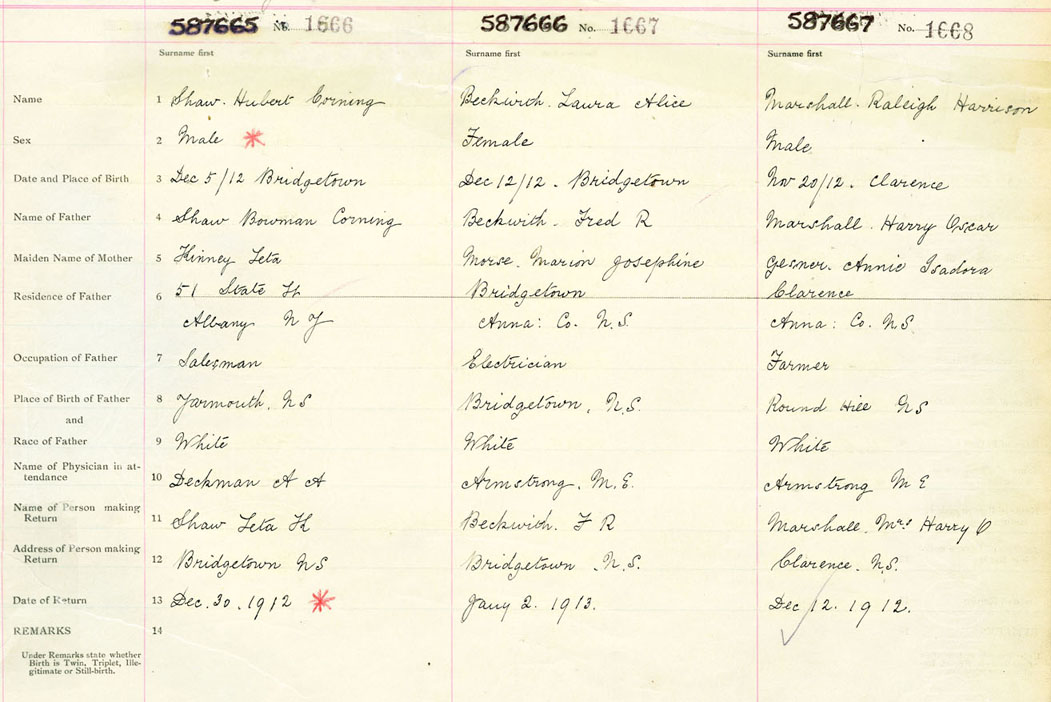 587665 No. 1666 587666 No. 1667 587667 No. 1668
Surname first Surname first Surname first
Name 1 Shaw. Hubert Corning Beckwith. Laura Alice Marshall. Raleigh Harrison
Sex 2 Male * Female Male
Date and Place of Birth 3 Dec 5/12 Bridgetown Dec 12/12. Bridgetown Nov 20/12. Clarence
Name of Father 4 Shaw Bowman Corning Beckwith. Fred R Marshall. Harry Oscar
Maiden Name of Mother 5 Kinney Leta Morse. Marion Josephine Gesner. Annie Isadora
Residence of Father 6 51 State St Bridgetown Clarence
Albany N Y Anna: Co. N.S. Anna: Co. N.S.
Occupation of Father 7 Salesman Electrician Farmer
Place of Birth of Father 8 Yarmouth, N S Bridgetown, N.S. Round Hill N S
and
Race of Father 9 White White White
Name of Physician in at-
tendance 10 Deckman A A Armstrong, M. E. Armstrong M E
Name of Person making
Return 11 Shaw Leta H Beckwith. F R Marshall, Mrs Harry O
Address of Person making
Return 12 Bridgetown N S Bridgetown, N.S. Clarence, N.S.
Date of Return 13 Dec. 30. 1912 * Jany 2. 1913. Dec 12. 1912.
REMARKS 14
Under Remarks state whether
Birth is Twin, Triplet, Ille-
gitimate or Still-birth.